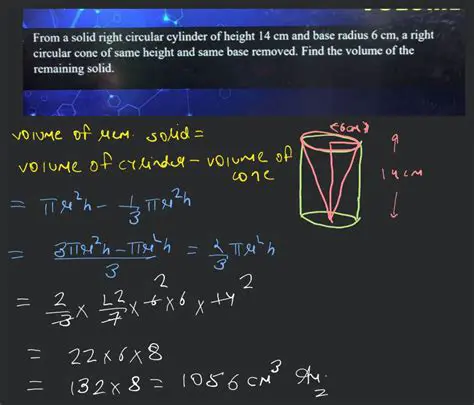 From a solid right circular cylinder of height 14 cm and base radius 6 cm, a right
circular cone of same height and same base removed. Find the volume of the
remaining solid.
volume of rem. solid =
volume of cylinder - volume of
cone
= πr²h - 1/3 πr²h
= 3πr²h - πr²h / 3 = 2/3 πr²h
= 2/3 × 22/7 × 6 2 × 6 × 14 2
= 22 × 6 × 8
= 132 × 8 = 1056 cm³ Ans.
6cm
14cm